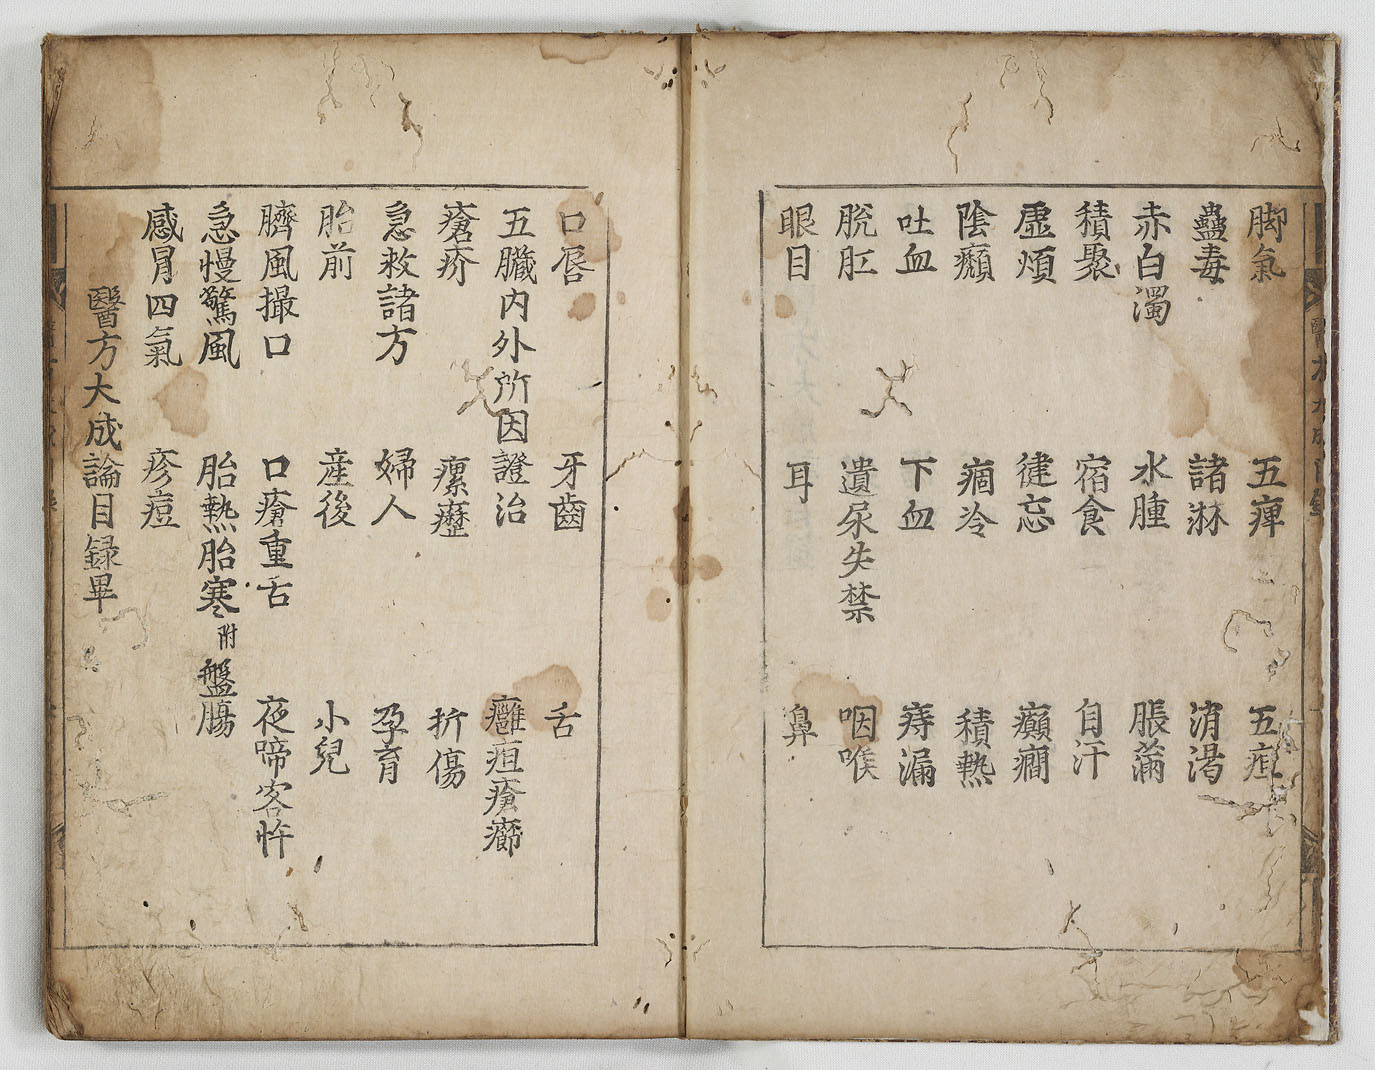 脚氣 五痺 五疸
蠱毒 諸淋 消渴
赤白濁 水腫 脹滿
積聚 宿食 自汗
虛煩 健忘 癲癎
陰㿗 痼冷 積熱
吐血 下血 痔漏
脫肛 遺尿失禁 咽喉
眼目 耳 鼻
口唇 牙齒 舌
五臟内外所因證治 癰疽瘡癤
瘡疥 瘰癧 折傷
急救諸方 婦人 孕育
胎前 産後 小兒
臍風撮口 口瘡重舌 夜啼客忤
急慢驚風 胎熱胎寒附盤腸
感冒四氣 疹痘
醫方大成論目録畢